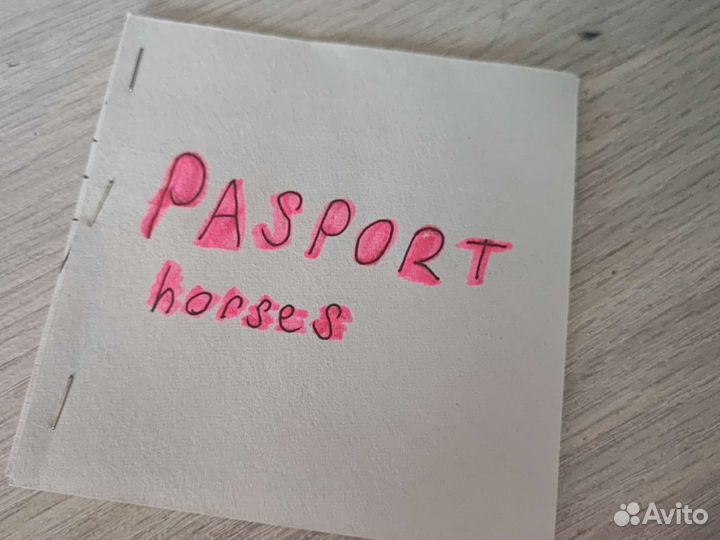 PASPORT
horses
Avito